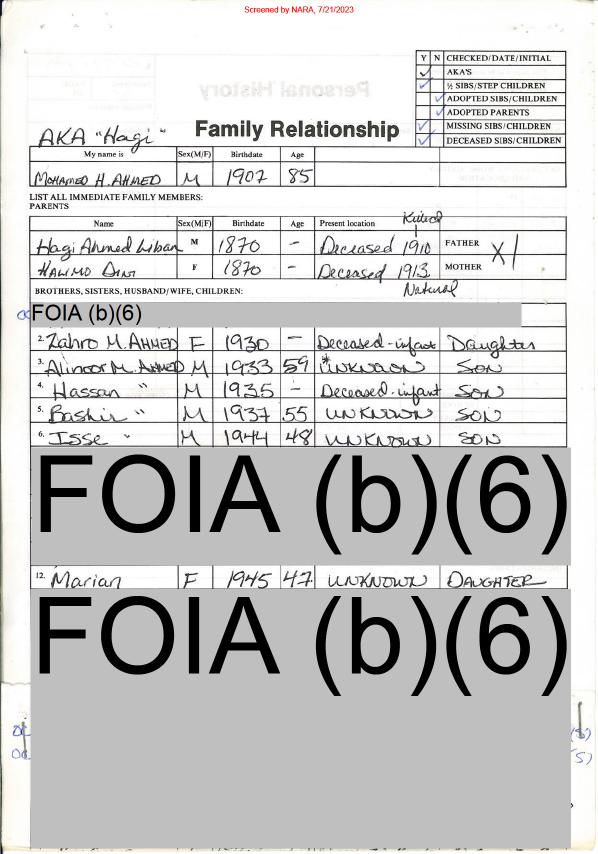 Screened by NARA, 7/21/2023
Y N CHECKED/DATE/INITIAL
✓ AKA'S
✓ ½ SIBS/STEP CHILDREN
✓ ADOPTED SIBS/CHILDREN
✓ ADOPTED PARENTS
✓ MISSING SIBS/CHILDREN
✓ DECEASED SIBS/CHILDREN
Personal History
AKA "Hagi"
Family Relationship
My name is Sex(M/F) Birthdate Age
MOHAMED H. AHMED M 1907 85
LIST ALL IMMEDIATE FAMILY MEMBERS:
PARENTS
Killed
Name Sex(M/F) Birthdate Age Present location
Hagi Ahmed Liban M 1870 - Deceased 1910 FATHER
HALIMO F 1870 - Deceased 1913 MOTHER
Natural
BROTHERS, SISTERS, HUSBAND/WIFE, CHILDREN:
FOIA (b)(6)
2. Zahro M. AHMED F 1930 - Deceased-infant Daughter
3. Alinoor M. AHMED M 1933 59 *UNKNOWN SON
4. Hassan " M 1935 - Deceased-infant SON
5. Bashir " M 1937 55 UNKNOWN SON
6. Isse " M 1944 48 UNKNOWN SON
FOIA (b)(6)
12. Marian F 1945 47 UNKNOWN DAUGHTER
FOIA (b)(6)